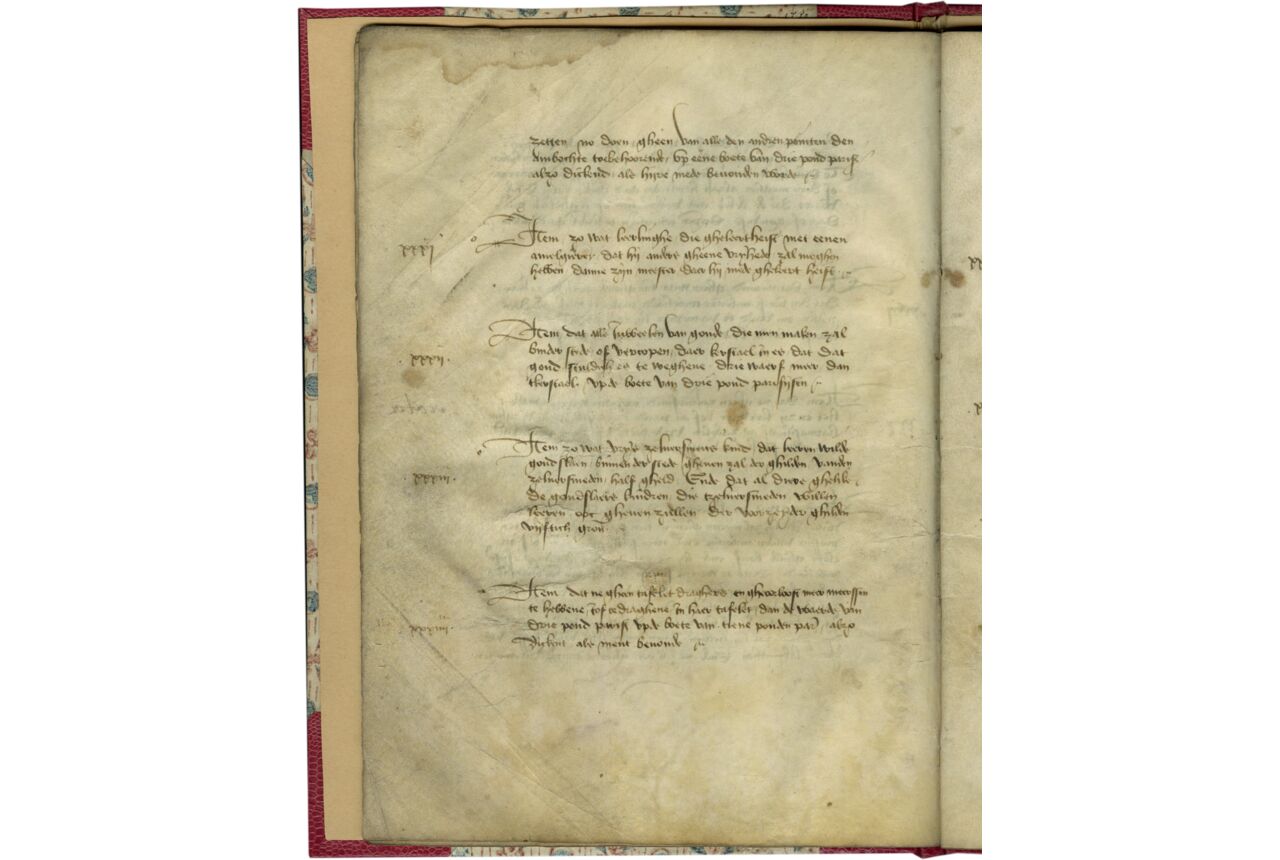 zetten no doen gheen van alle den andren pointen den
Ambochte toebehoorende up eene boete van drie pond paris
alzo dickend als hijre mede bevonden worde
xxxi
Item zo wat leerlinghe die gheleert heift met eenen
dat hij anders gheene vryhede zal moghen
hebben danne zijn meester daer hij mede gheleert heift
xxxii
Item dat alle Juweelen van goude die men maken zal
binder stede of vercopen daer kerstael in es dat dat
goud es te weghene drie waerf meer dan
tkerstael up de boete van drie pond parisijsen
xxxiii
Item zo wat vrijs zelversmets kind dat leeren wilde
goudslaen binnen der stede gheven zal der ghilden vanden
zelversmeden half gheld Ende dat al diere ghelike
de goudslaers kindren die tzelversmeden willen
leeren ooc gheven zullen der voorzeyder ghilden
vijftich gron
xxxiiii
Item dat ne gheen tafelet draghere en gheorlooft meer
te hebbene jof te draghene in haer tafelet dan de waerde van
drie pond paris up de boete van tiene ponden par alzo
dickent als ment bevonde